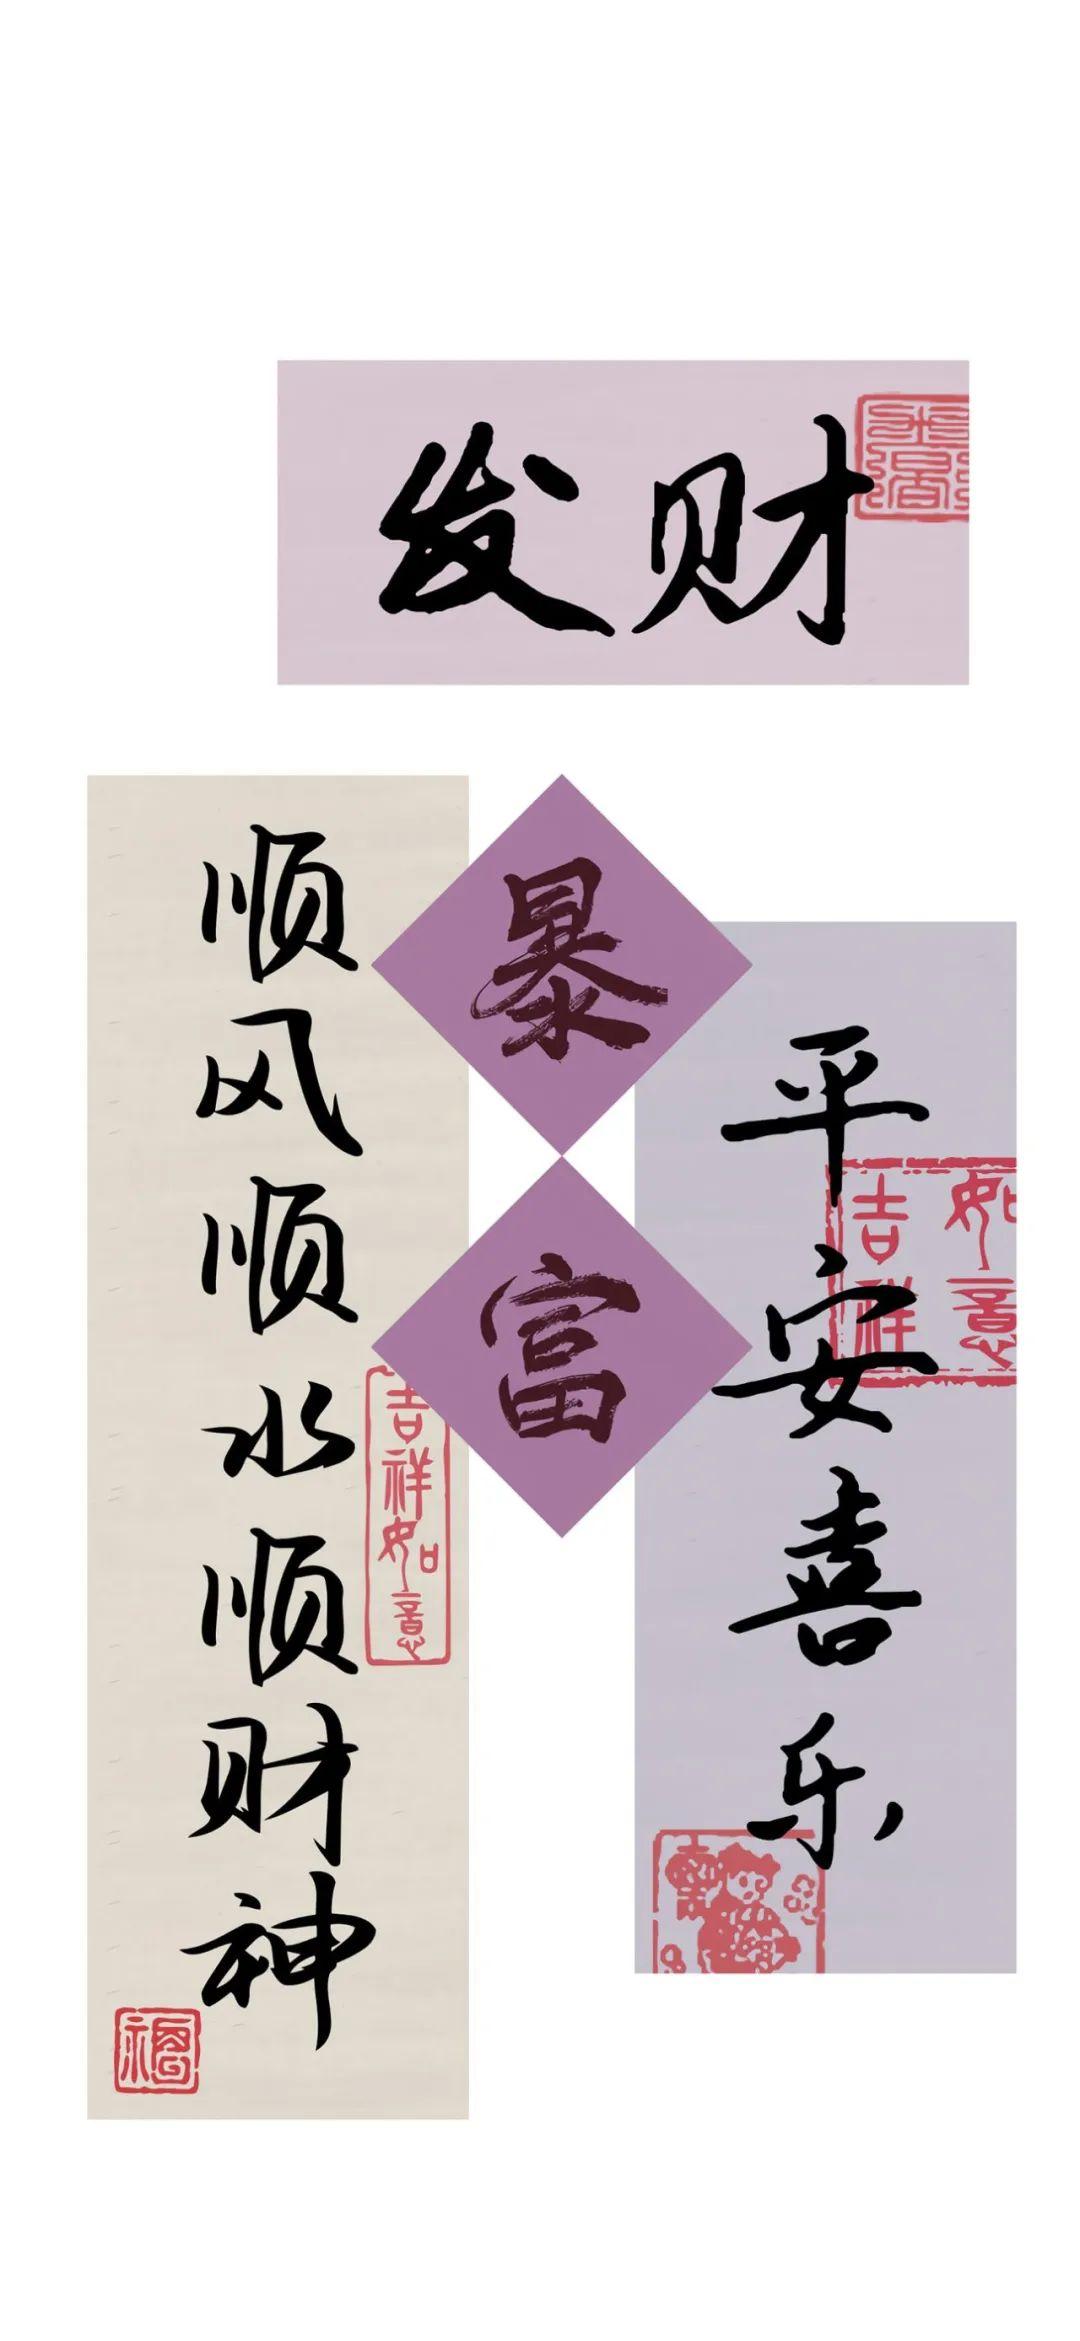 发财
顺风顺水顺财神
吉祥如意
福
暴富
平安喜乐
吉祥
如意